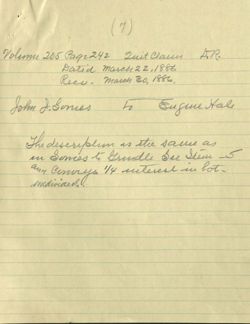 (7)
Volume 205 Page 242 Quit Claim D.R.
Dated March 22, 1886
Recv. March 30, 1886.
John J. Gomes to Eugene Hale
The description is the same as
in Gomes to Grindle See Item 5
Conveys 1/4 interest in lot
undivided.